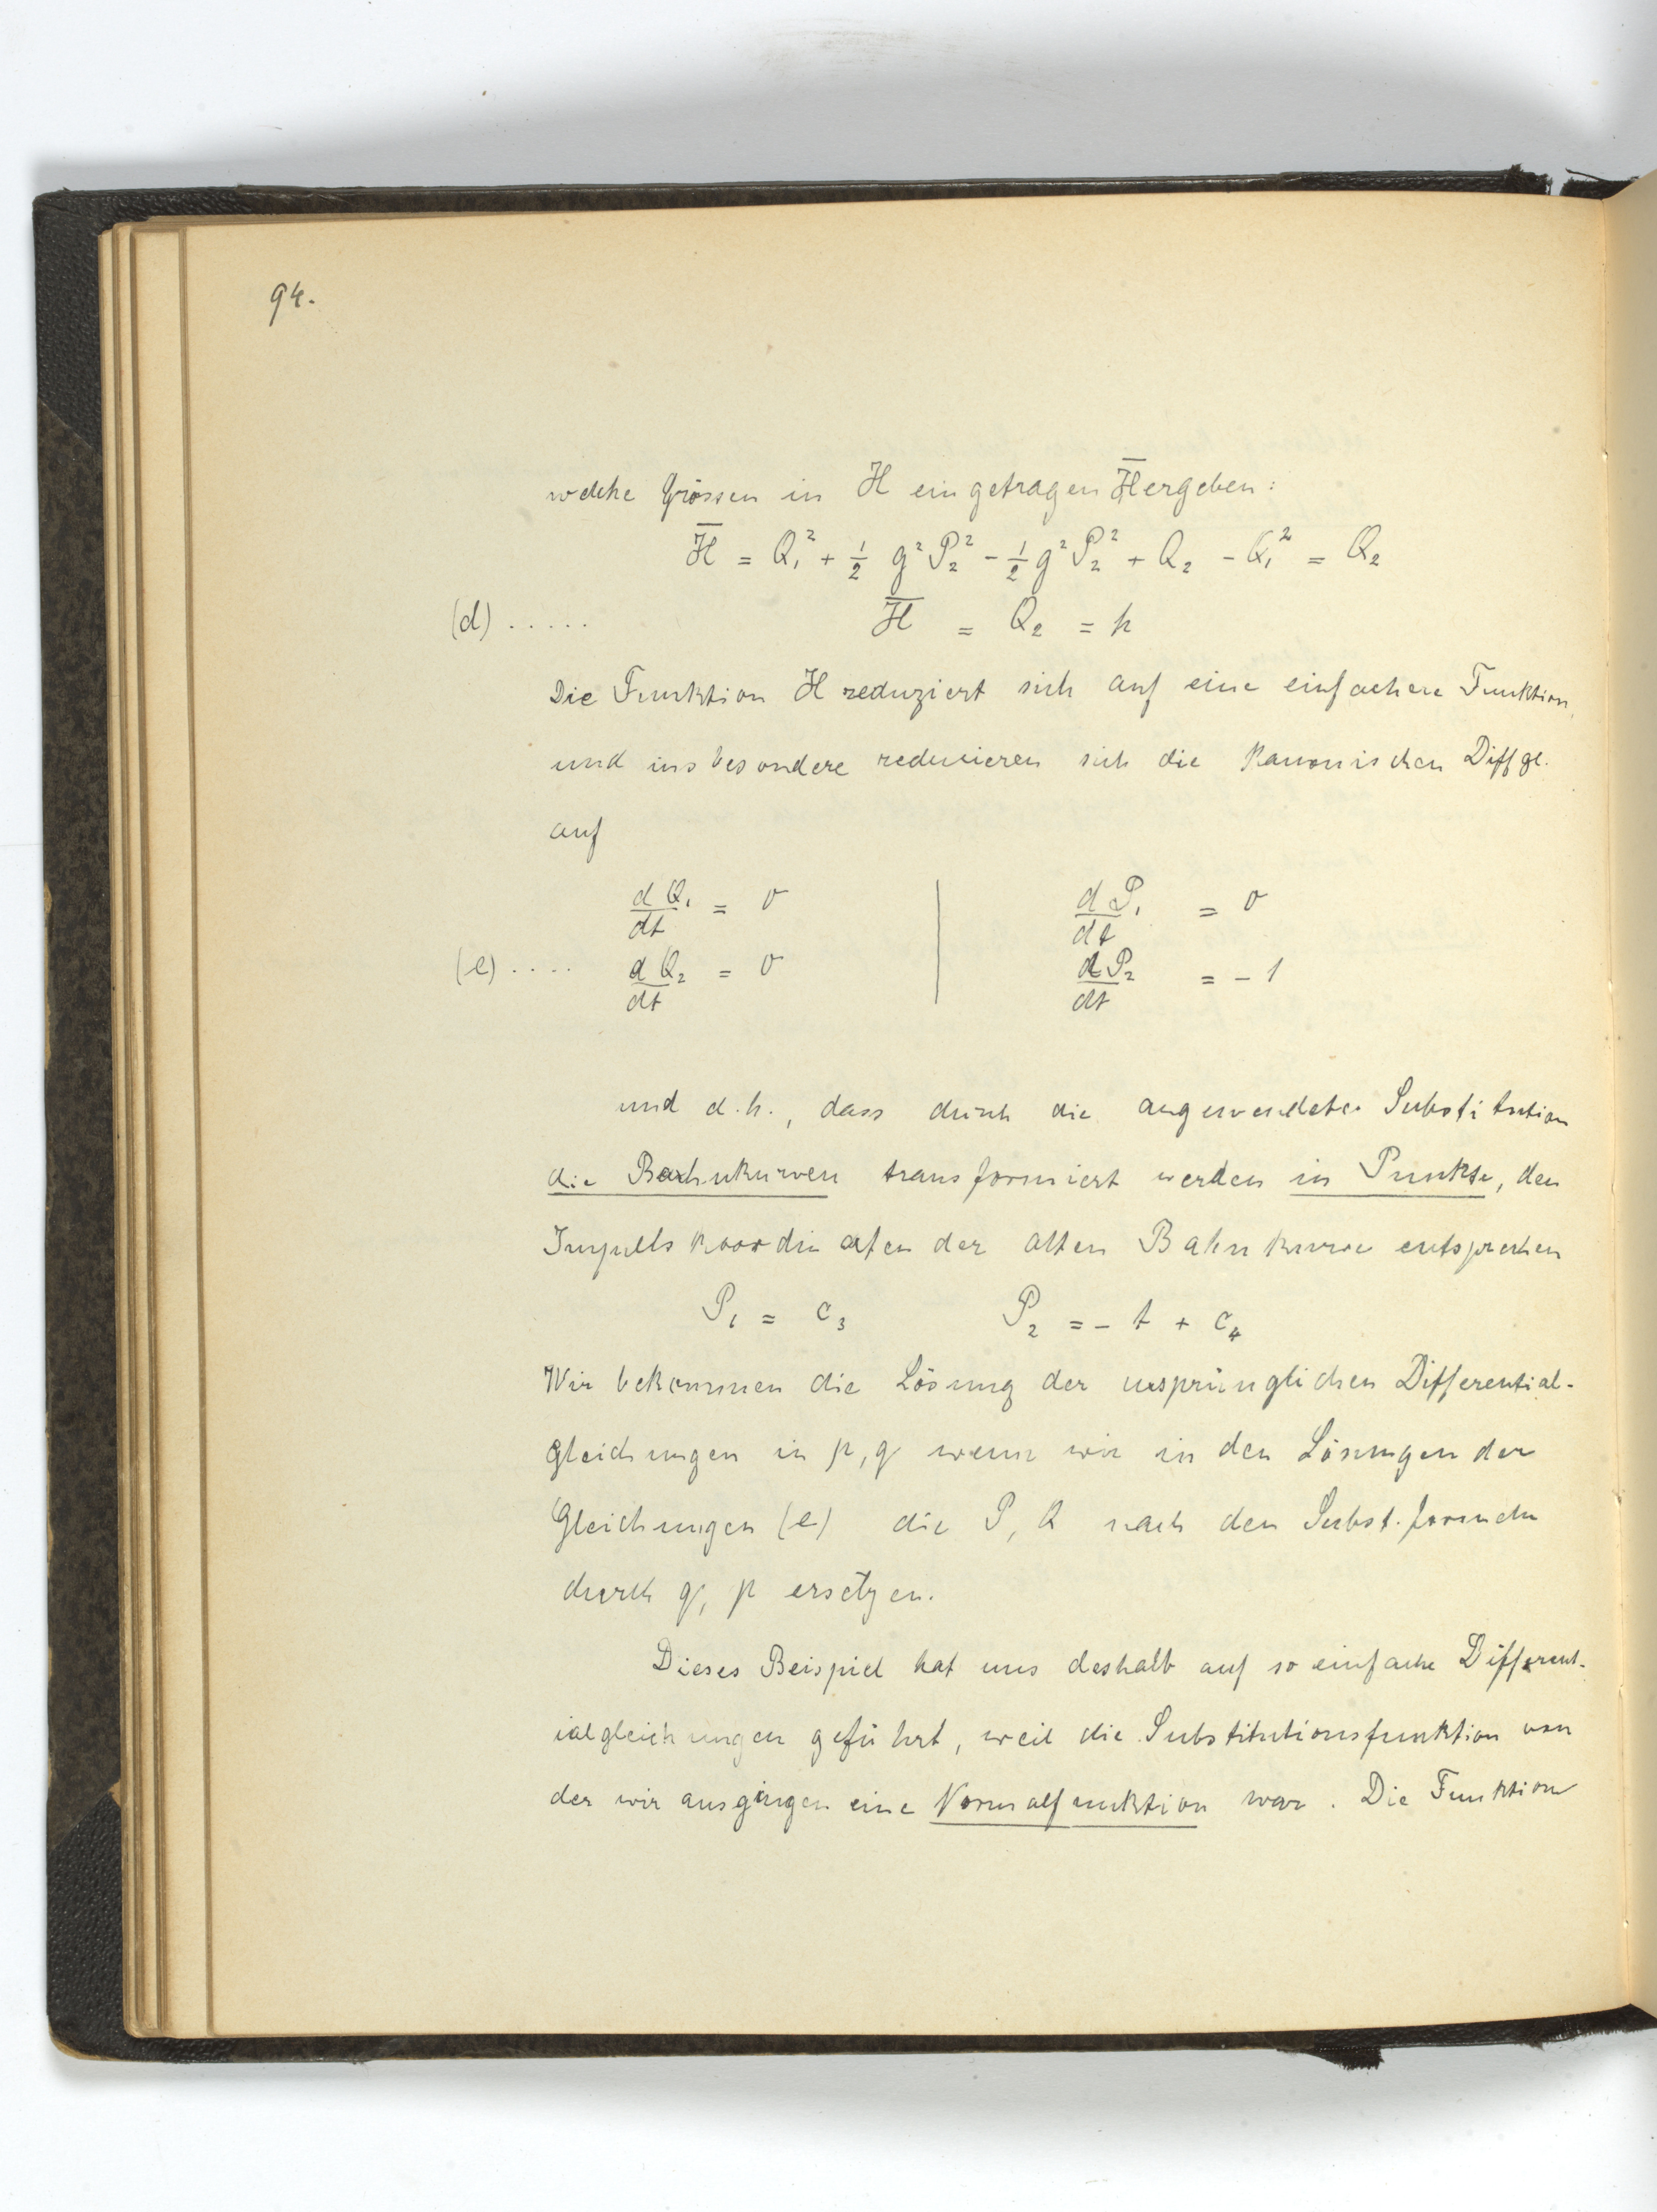 94.
welche Grössen in H eingetragen H̅ ergeben:
H̅ = Q₁² + ½ g² P₂² - ½ g² P₂² + Q₂ - Q₁² = Q₂
(d) ..... H̅ = Q₂ = h
Die Funktion H reduziert sich auf eine einfachere Funktion,
und insbesondere reducieren sich die kanonischen Diffgl.
auf
dQ₁/dt = 0 | dP₁/dt = 0
(e) .... dQ₂/dt = 0 | dP₂/dt = -1
und d.h., dass durch die angewendete Substitution
die Bahnkurven transformiert werden in Punkte, den
Impulskoordinaten der alten Bahnkurve entsprechen
P₁ = c₃ P₂ = - t + c₄
Wir bekommen die Lösung der ursprünglichen Differential-
gleichungen in p, q wenn wir in den Lösungen der
Gleichungen (e) die P, Q nach den Subst. formeln
durch q, p ersetzen.
Dieses Beispiel hat uns deshalb auf so einfache Different-
ialgleichungen geführt, weil die Substitutionsfunktion von
der wir ausgingen eine Normalfunktion war. Die Funktion